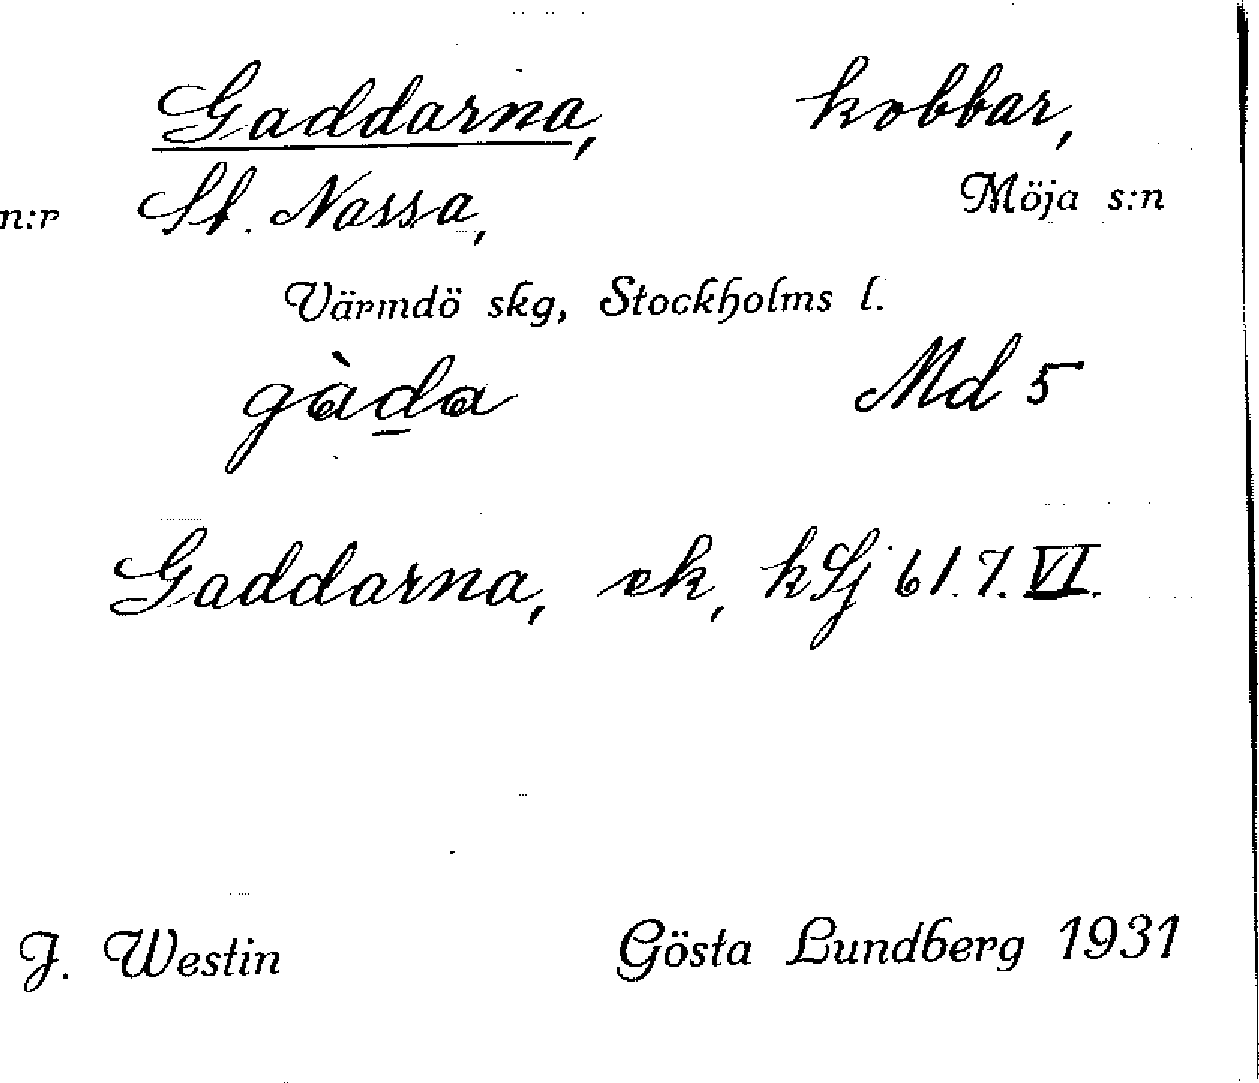 Gaddarna, kobbar,
n:r St. Nassa, Möja s:n
Värmdö skg, Stockholms l.
gàd̲a Md 5
Gaddarna, ek, kSj 61.7.VI.
J. Westin Gösta Lundberg 1931